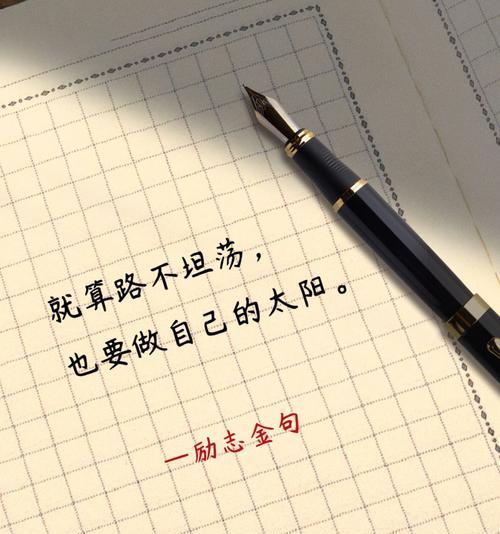 就算路不坦荡，
也要做自己的太阳。
—励志金句